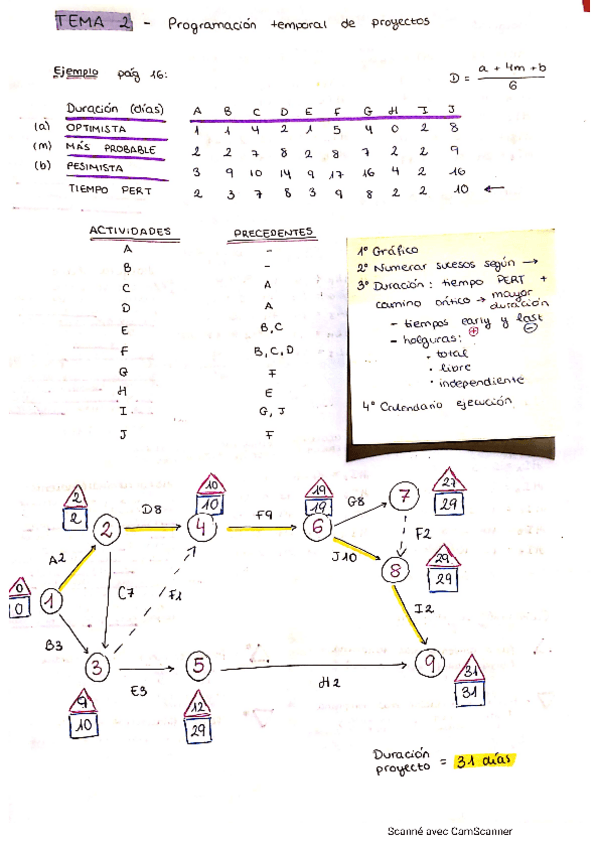 TEMA 2 - Programación temporal de proyectos
Ejemplo pág 16:
D = a + 4m + b / 6
Duración (días) A B C D E F G H I J
(a) OPTIMISTA 1 1 4 2 1 5 4 0 2 8
(m) MÁS PROBABLE 2 2 7 8 2 8 7 2 2 9
(b) PESIMISTA 3 9 10 14 9 17 16 4 2 16
TIEMPO PERT 2 3 7 8 3 9 8 2 2 10 ←
ACTIVIDADES PRECEDENTES
A -
B -
C A
D A
E B,C
F B,C,D
G F
H E
I G, J
J F
1º Gráfico
2º Numerar sucesos según →
3º Duración: tiempo PERT +
camino crítico → mayor
duración
- tiempos early y last
⊕ ⊖
- holguras:
· total
· libre
· independiente
4º Calendario ejecución
2
2
10
10
19
19
27
29
D8
F9
G8
2
4
6
7
A2
F2
J10
0
0
1
C7
F1
8
29
29
B3
I2
3
5
9
E3
H2
9
10
12
29
31
31
Duración
proyecto = 31 días
Scanné avec CamScanner